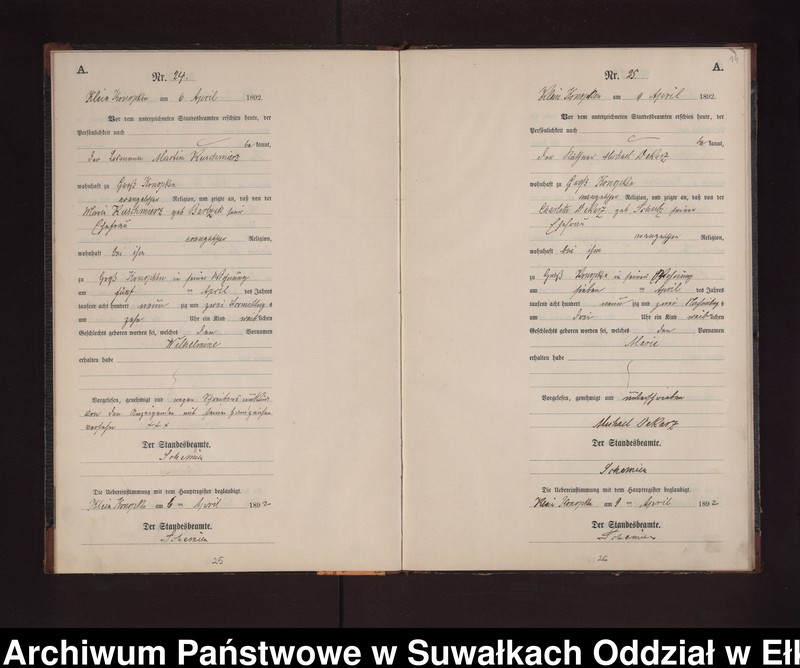 A.
Nr. 24.
Klein Konopken am 6 April 1892
Vor dem unterzeichneten Standesbeamten erschien heute, der
Persönlichkeit nach
bekannt,
der Martin Kuschmierz
wohnhaft zu Groß Konopken
evangelischer Religion, und zeigte an, daß von der
Marie Kuschmierz geb Bartzik seiner
Ehefrau
evangelischer Religion,
wohnhaft bei ihm
zu Groß Konopken in seiner Wohnung
am fünf ten April des Jahres
tausend acht hundert neun zig und zwei Vormittags
um zehn Uhr ein Kind weiblichen
Geschlechts geboren worden sei, welches den Vornamen
Wilhelmine
erhalten habe
Vorgelesen, genehmigt und wegen Schreibens
von dem Anzeigenden mit seinem Handzeichen
versehen +++
Der Standesbeamte.
Die Uebereinstimmung mit dem Hauptregister beglaubigt.
Klein Konopken am 6 ten April 1892
Der Standesbeamte.
25
14
A.
Nr. 25.
Klein Konopken am 9 April 1892.
Vor dem unterzeichneten Standesbeamten erschien heute, der
Persönlichkeit nach
bekannt,
der Käthner Michael Dekarz
wohnhaft zu Groß Konopken
evangelischer Religion, und zeigte an, daß von der
Charlotte Dekarz geb seiner
Ehefrau
evangelischer Religion,
wohnhaft bei ihm
zu Groß Konopken in seiner Wohnung
am sieben ten April des Jahres
tausend acht hundert neun zig und zwei Nachmittags
um drei Uhr ein Kind weiblichen
Geschlechts geboren worden sei, welches den Vornamen
Marie
erhalten habe
Vorgelesen, genehmigt und unterschrieben
Michael Dekarz
Der Standesbeamte.
Die Uebereinstimmung mit dem Hauptregister beglaubigt.
Klein Konopken am 9 ten April 1892
Der Standesbeamte.
26
Archiwum Państwowe w Suwałkach Oddział w Ełk